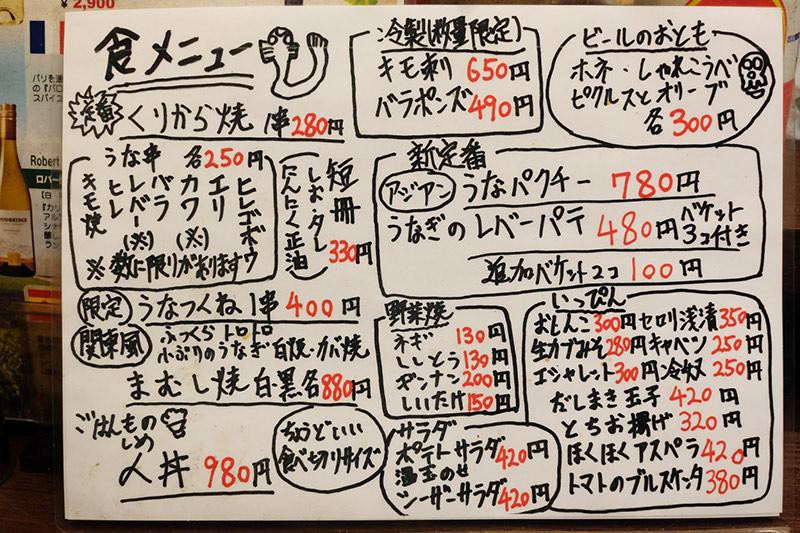 食メニュー
定番
くりから焼 1串 280円
うな串 各250円
キモ焼
ヒレ
レバー(※)
バラ
カワ(※)
エリ
ヒレゴボウ
※数に限りがあります
短冊
しお・タレ
にんにく正油
330円
限定 うなつくね 1串 400円
関東風 ふっくらトロトロ
小ぶりのうなぎ 白焼・カバ焼
まむし焼 白・黒 各880円
ごはんもの
しめ
人丼 980円
ちょうどいい
食べ切りサイズ
冷製(数量限定)
キモ刺 650円
バラポンズ 490円
ビールのおとも
ホネ・しゃれこうべ
ピクルスとオリーブ
各300円
新定番
アジアン うなパクチー 780円
うなぎのレバーパテ 480円 バケット
3コ付き
追加バケット2コ 100円
野菜焼
ネギ 130円
ししとう 130円
ギンナン 200円
しいたけ 150円
サラダ
ポテトサラダ 420円
温玉のせ
シーザーサラダ 420円
いっぴん
おしんこ 300円 セロリ浅漬 350円
生カブみそ 280円 キャベツ 250円
エシャレット 300円 冷奴 250円
だしまき玉子 420円
とちお揚げ 320円
ほくほくアスペラ 420円
トマトのブルスケッタ 380円
¥2,900
Robert